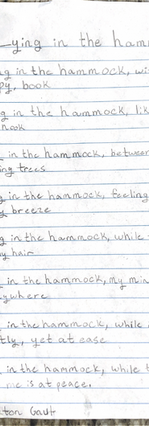 ying in the ham
g in the hammock, wi
py, book
g in the hammock, lik
nook
in the hammock, between
ing trees
g in the hammock, feeling
y breeze
g in the hammock, while
my hair
in the hammock, my min
ywhere
in the hammock, while
tly, yet at ease
in the hammock, while t
me is at peace.
ton Gault